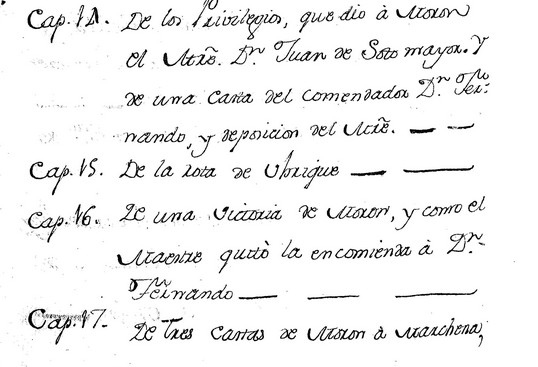 Cap. 14. De los Privilegios, que dio à Moron
el Mtrẽ. Dⁿ. Juan de Sotomayor. Y
de una Carta del Comendador Dⁿ. Fer-
nando, y deposicion del Mtrẽ.
Cap. 15. De la rota de Ubrique
Cap. 16. De una victoria de Moron, y como el
Maestre quitò la encomienda à Dⁿ.
Fernando
Cap. 17. De tres Cartas de Moron à Marchena,